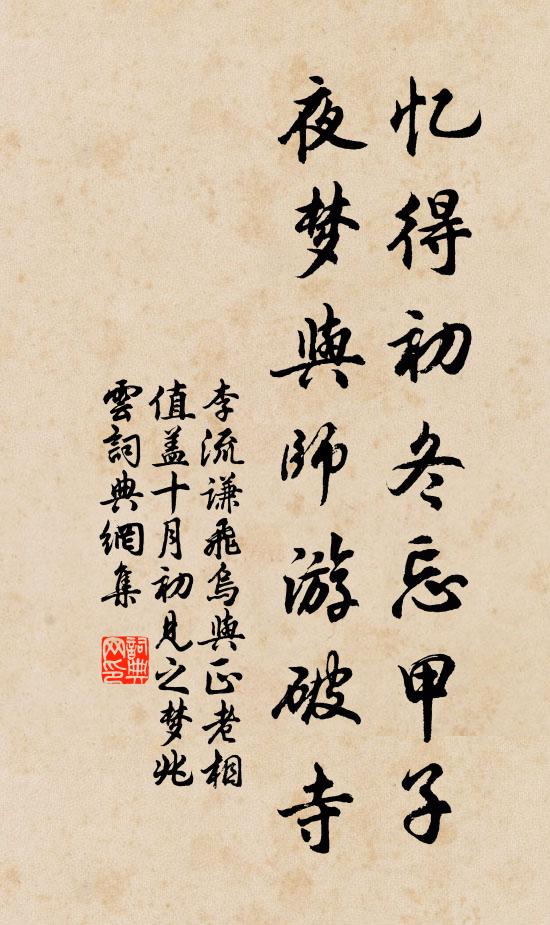 忆得初冬忘甲子
夜梦與师游破寺
李流谦飛烏與正老相
值盖十月初見之梦兆
雲詞典網集
詞典网印